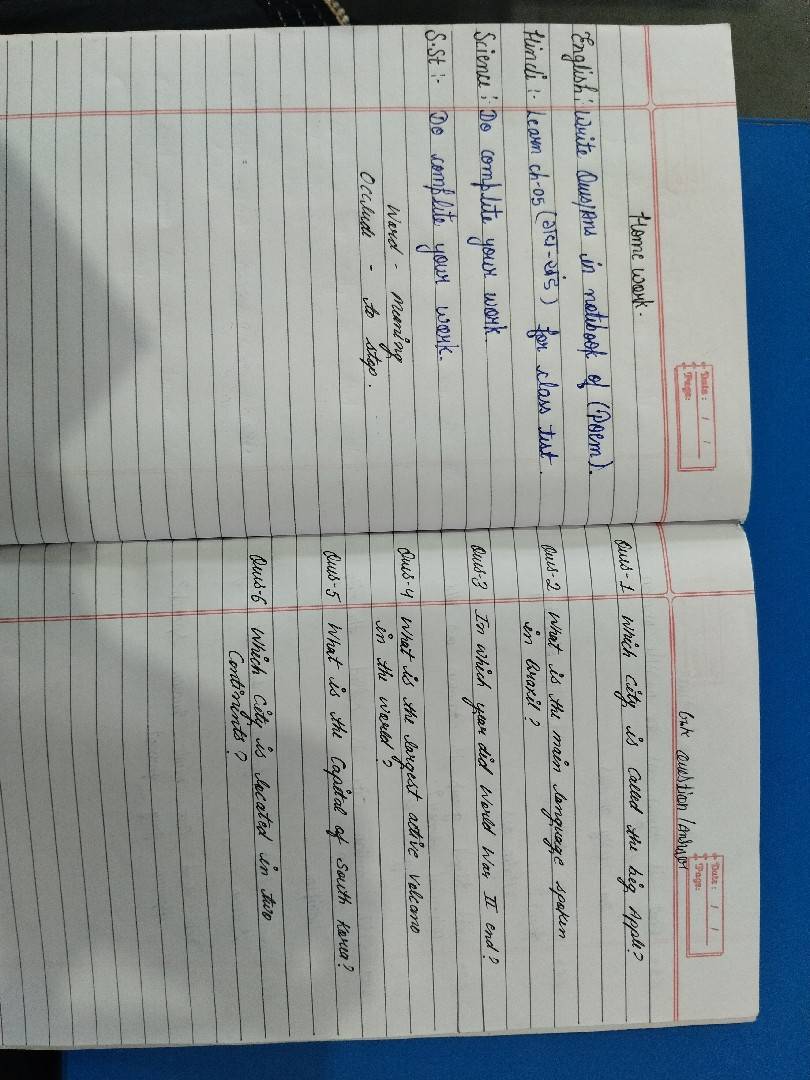 Date : / /
Page:
Home work.
English : Write Ques/Ans in notebook of (Poem).
Hindi :- Learn ch-05 () for class test.
Science : Do complite your work.
S.St :- Do complite your work.
Word - Meaning
Occlude - to stop.
Date : / /
Page:
Gk question /Answer
Ques-1 Which City is called the big Apple?
Ques-2 What is the main language spoken
in Brazil ?
Ques-3 In which year did World War II end?
Ques-4 What is the largest active Volcano
in the world ?
Ques-5 What is the Capital of South Korea?
Ques-6 Which City is located in two
Continents ?